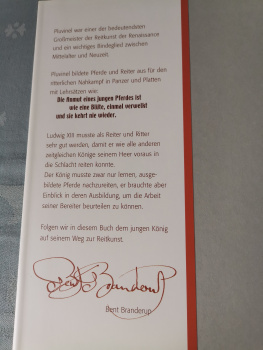 Pluvinel war einer der bedeutendsten
Großmeister der Reitkunst der Renaissance
und ein wichtiges Bindeglied zwischen
Mittelalter und Neuzeit.
Pluvinel bildete Pferde und Reiter aus für den
ritterlichen Nahkampf in Panzer und Platten
mit Lehrsätzen wie:
Die Anmut eines jungen Pferdes ist
wie eine Blüte, einmal verwelkt
und sie kehrt nie wieder.
Ludwig XIII musste als Reiter und Ritter
sehr gut werden, damit er wie alle anderen
zeitgleichen Könige seinem Heer voraus in
die Schlacht reiten konnte.
Der König musste zwar nur lernen, ausge-
bildete Pferde nachzureiten, er brauchte aber
Einblick in deren Ausbildung, um die Arbeit
seiner Bereiter beurteilen zu können.
Folgen wir in diesem Buch dem jungen König
auf seinem Weg zur Reitkunst.
Bent Branderup
Bent Branderup